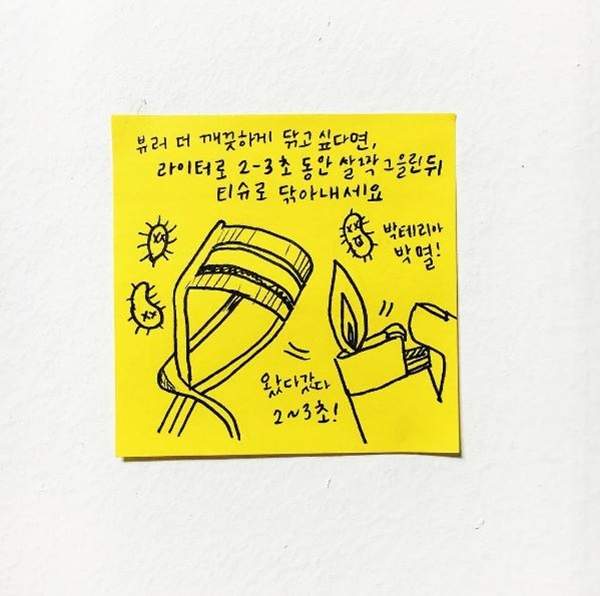 뷰러 더 깨끗하게 닦고 싶다면,
라이터로 2-3초 동안 살짝 그을린 뒤
티슈로 닦아내세요
박테리아
박멸!
왔다갔다
2~3초!